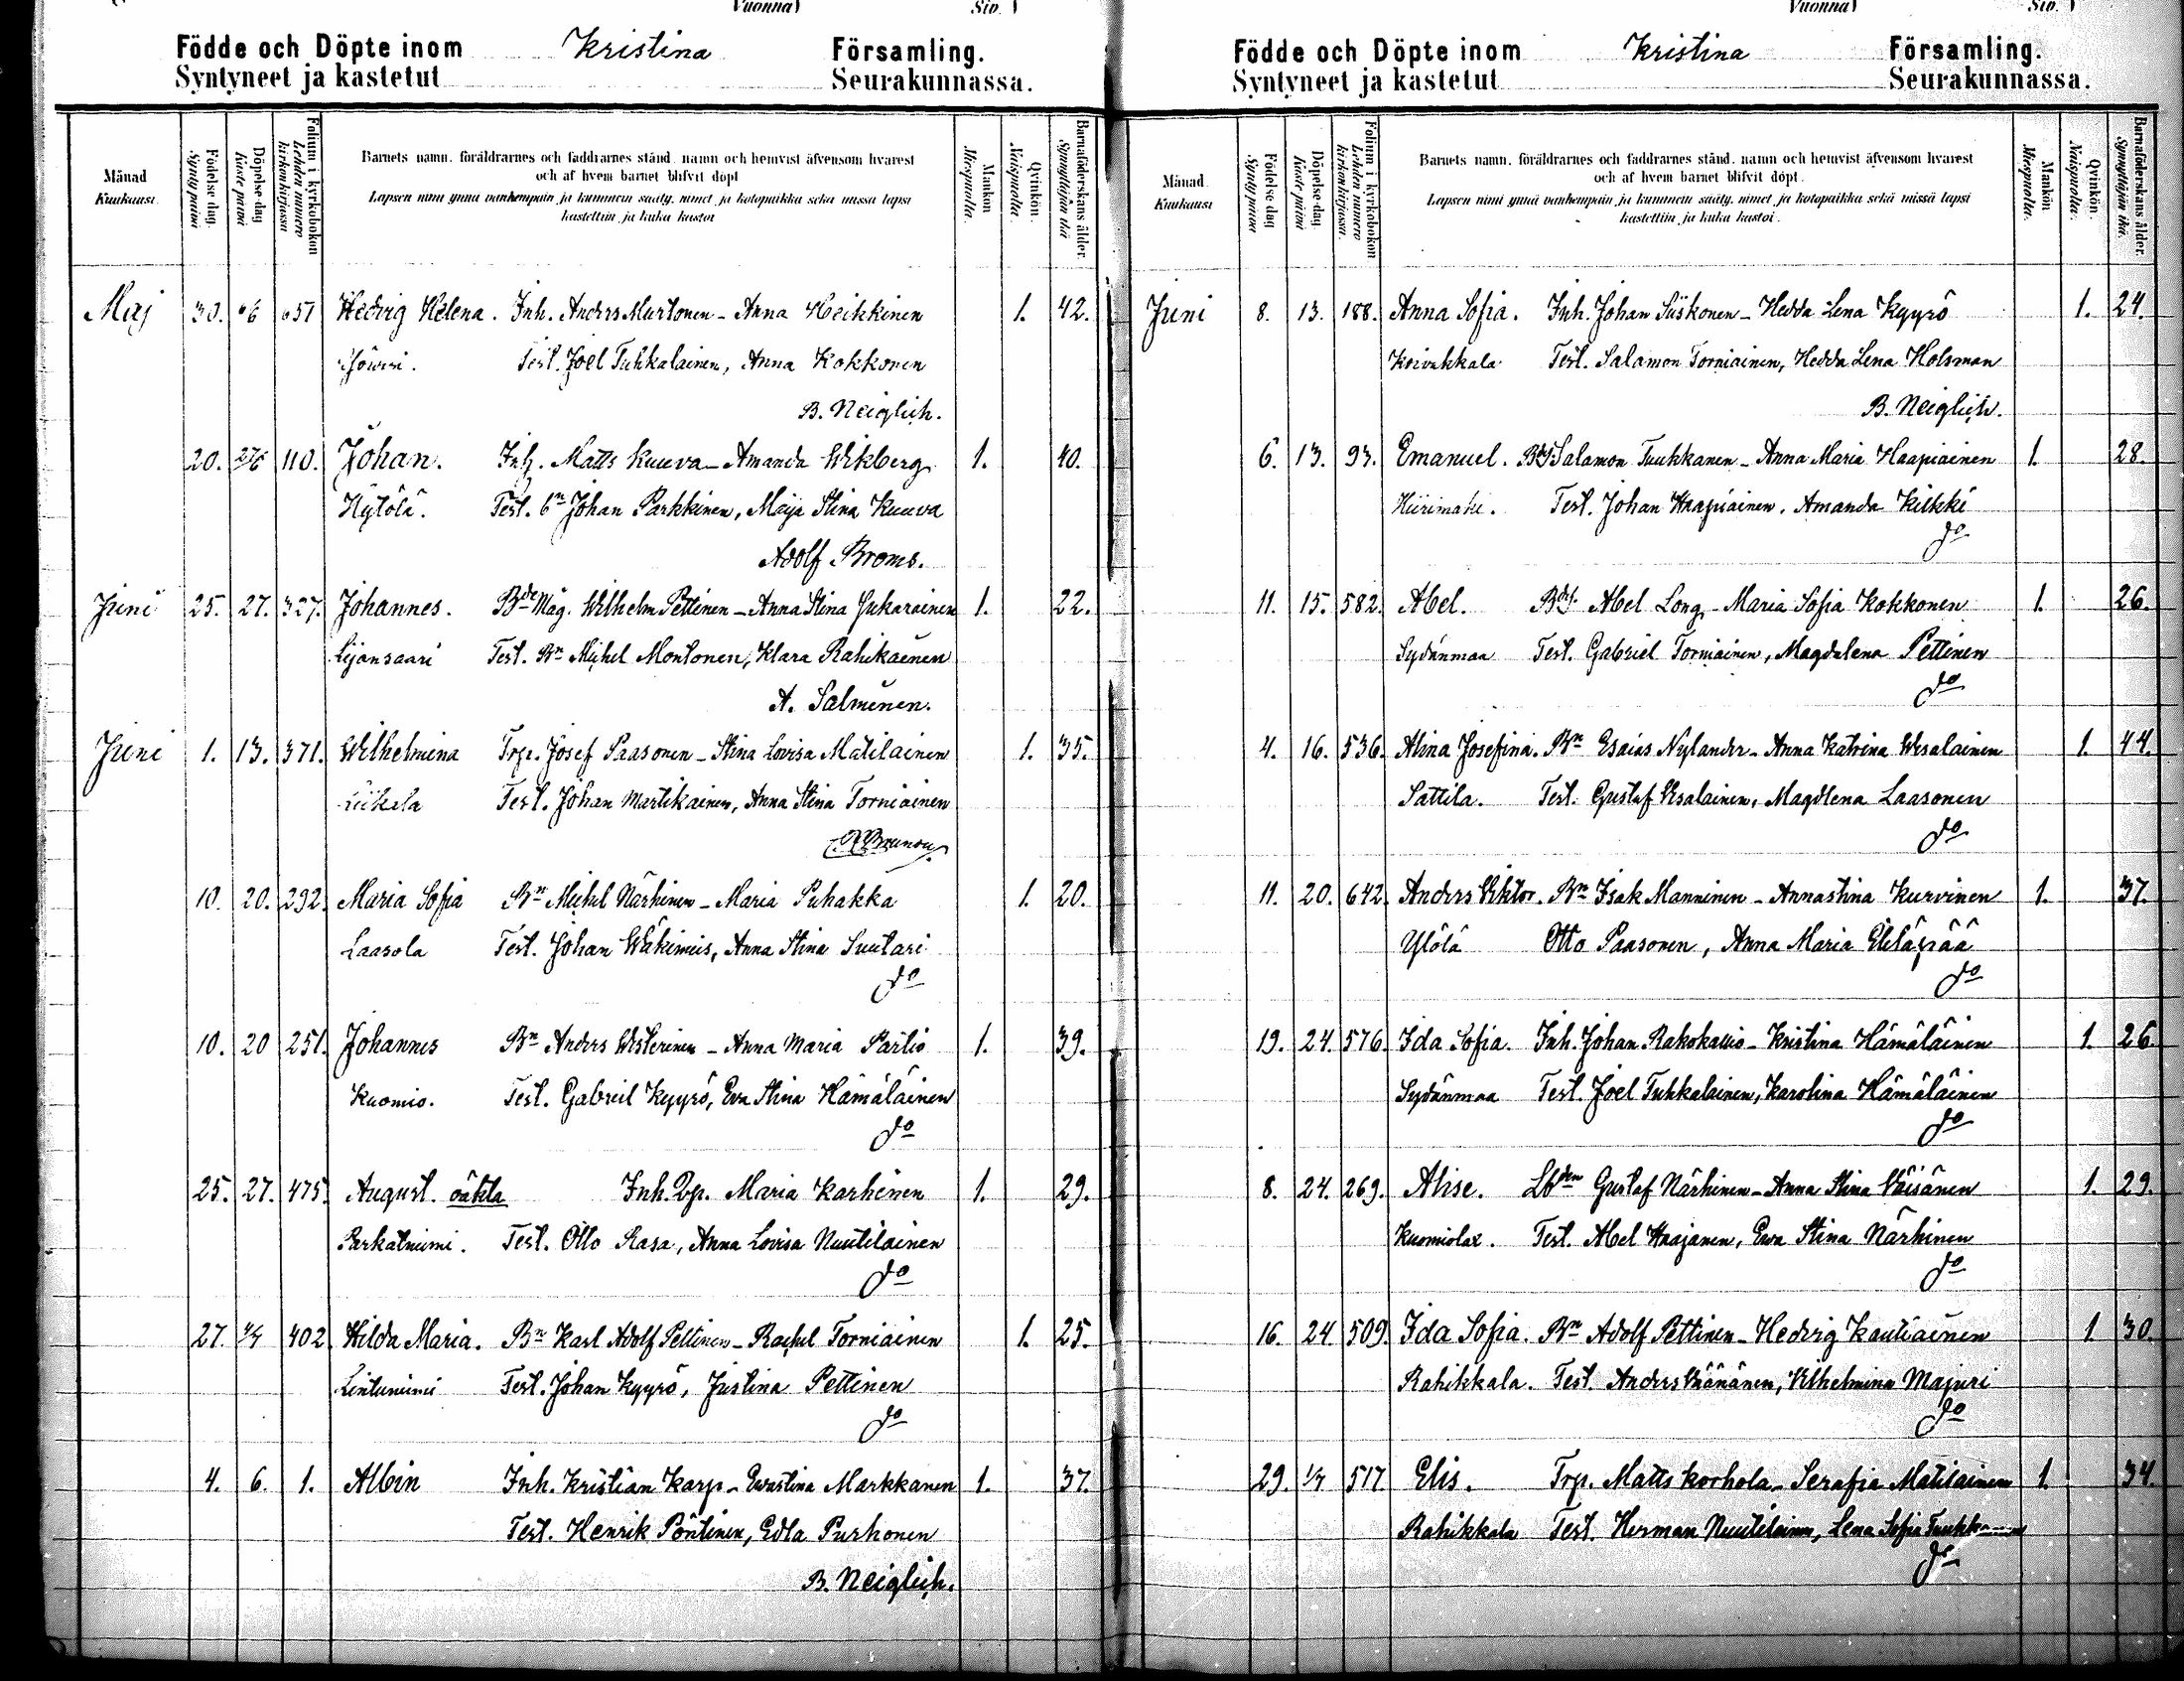 Vuonna) Siv. )
Födde och Döpte inom Kristina Församling.
Syntyneet ja kastetut Seurakunnassa.
Månad Kuukausi
Födelse dag. Synty päivä
Döpelse dag Kaste päivä
Folium i kyrkoboken Lehden numero kirkonkirjassa
Barnets namn, föräldrarnes och faddrarnes stånd, namn och hemvist äfvensom hvarest
och af hvem barnet blifvit döpt
Lapsen nimi ynnä vanhempain ja kummein sääty, nimet ja kotopaikka sekä missä lapsi
kastettiin ja kuka kastoi
Mankön Miespuolia.
Qvinkön. Naispuolia.
Barnaföderskans ålder. Synnyttäjän ikä
Maj 30. 6/6 651 Hedvig Helena. Inh. Anders Murtonen - Anna Heikkinen 1. 42.
Test. Joel Tuhkalainen, Anna Kokkonen
B. Neiglich.
20. 27/6 110. Johan. Inh. Matts Kuuva - Amanda Wikberg 1. 40.
Hytölä. Test. Johan Parkkinen, Maija Stina Kuuva
Adolf Broms.
Juni 25. 27. 327. Johannes. Bde Måg. Wilhelm Pettinen - Anna Stina Jukarainen 1. 22.
Lijansaari Test. Bn Michel Montonen, Klara Rahikainen
A. Salminen.
Juni 1. 13. 371. Wilhelmina Trp. Josef Paasonen - Stina Lovisa Matilainen 1. 35.
Test. Johan Martikainen, Anna Stina Torniainen
10. 20. 292. Maria Sofia Bn Michel Närhinen - Maria Puhakka 1. 20.
Laasola Test. Johan Wäkimies, Anna Stina Suutari
do
10. 20 251. Johannes Bn Anders Westerinen - Anna Maria Pärtio 1. 39.
Kuomio. Test. Gabriel Kyyrö, Eva Stina Hämäläinen
do
25. 27. 475. August. oäkta Inh. Maria Karhinen 1. 29.
Parkatniemi. Test. Otto Rasa, Anna Lovisa Nuutilainen
do
27. 4/7 402 Hilda Maria. Bn Karl Adolf Pettinen - Rachel Torniainen 1. 25.
Lintuniemi Test. Johan Kyyrö, Justina Pettinen
do
4. 6. 1. Albin Inh. Kristian Karp - Evastina Markkanen 1. 37.
Test. Henrik Pöntinen, Edla Purhonen
B. Neiglich.
Vuonna) Siv. )
Födde och Döpte inom Kristina Församling.
Syntyneet ja kastetut Seurakunnassa.
Månad. Kuukausi
Födelse dag Synty päivä
Döpelse dag Kaste päivä
Folium i kyrkoboken Lehden numero kirkonkirjassa.
Barnets namn, föräldrarnes och faddrarnes stånd, namn och hemvist äfvensom hvarest
och af hvem barnet blifvit döpt.
Lapsen nimi ynnä vanhempain ja kummein sääty, nimet ja kotopaikka sekä missä lapsi
kastettiin ja kuka kastoi.
Mankön Miespuolia.
Qvinkön. Naispuolia.
Barnaföderskans ålder. Synnyttäjän ikä.
Juni 8. 13. 188. Anna Sofia. Inh. Johan Siiskonen - Hedda Lena Kyyrö 1. 24.
Koivukkala Test. Salamon Torniainen, Hedda Lena Holsman
B. Neiglich.
6. 13. 93. Emanuel. Salamon Tuukkanen - Anna Maria Haapiainen 1. 28.
Hiirimäki. Test. Johan Haapiainen, Amanda Kiikki
do
11. 15. 582. Abel. Abel Long - Maria Sofia Kokkonen 1. 26.
Sydänmaa Test. Gabriel Torniainen, Magdalena Pettinen
do
4. 16. 536. Alina Josefina. Bn Esaias Nylander - Anna Katrina Wesalainen 1. 44.
Sattila. Test. Gustaf Wesalainen, Magdlena Laasonen
do
11. 20. 642. Anders Viktor. Bn Isak Manninen - Annastina Kurvinen 1. 37.
Ylölä Otto Paasonen, Anna Maria Eteläpää
do
19. 24. 576. Ida Sofia. Inh. Johan Rakokallio - Kristina Hämäläinen 1. 26
Sydänmaa Test. Joel Tuhkalainen, Karolina Hämäläinen
do
8. 24. 269. Alise. Gustaf Närhinen - Anna Stina Väisänen 1. 29.
Kuomiolax. Test. Abel Haajanen, Eva Stina Närhinen
do
16. 24 509. Ida Sofia. Bn Adolf Pettinen - Hedvig Kautiainen 1 30.
Rahikkala. Test. Anders Väänänen, Vilhelmina Majuri
do
29. 1/7 517. Elis. Trp. Matts Korhola - Serafia Matilainen 1. 34.
Rahikkala Test. Herman Nuutilainen, Lena Sofia Tuukkanen
do